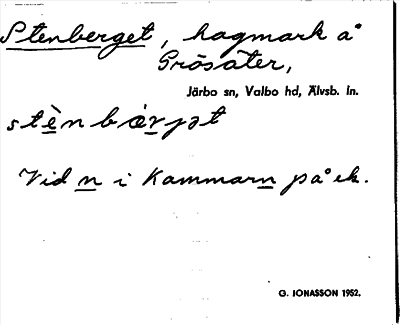 Stenberget, hagmark å
Grösäter,
Järbo sn, Valbo hd, Älvsb. ln.
stènbæ̀rjət
Vid n i Kammarn på ek.
G. IONASSON 1952.